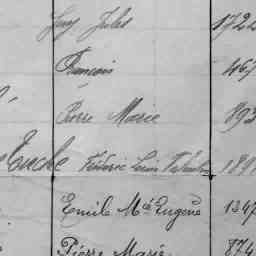 Jules 172
François 467
Pierre Marie 893
Tuche Frédéric Louis 189
Emile Mie Eugène 1347
Pierre Marie 874